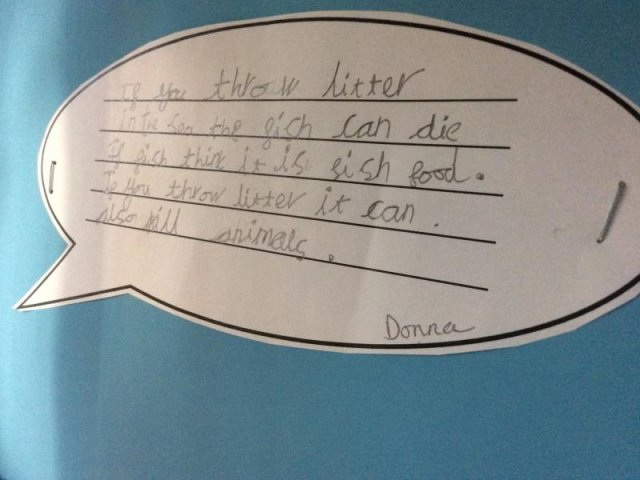 If you throw litter
in the sea the fish can die
If fish think it is fish food.
If you throw litter it can.
also kill animals.
Donna